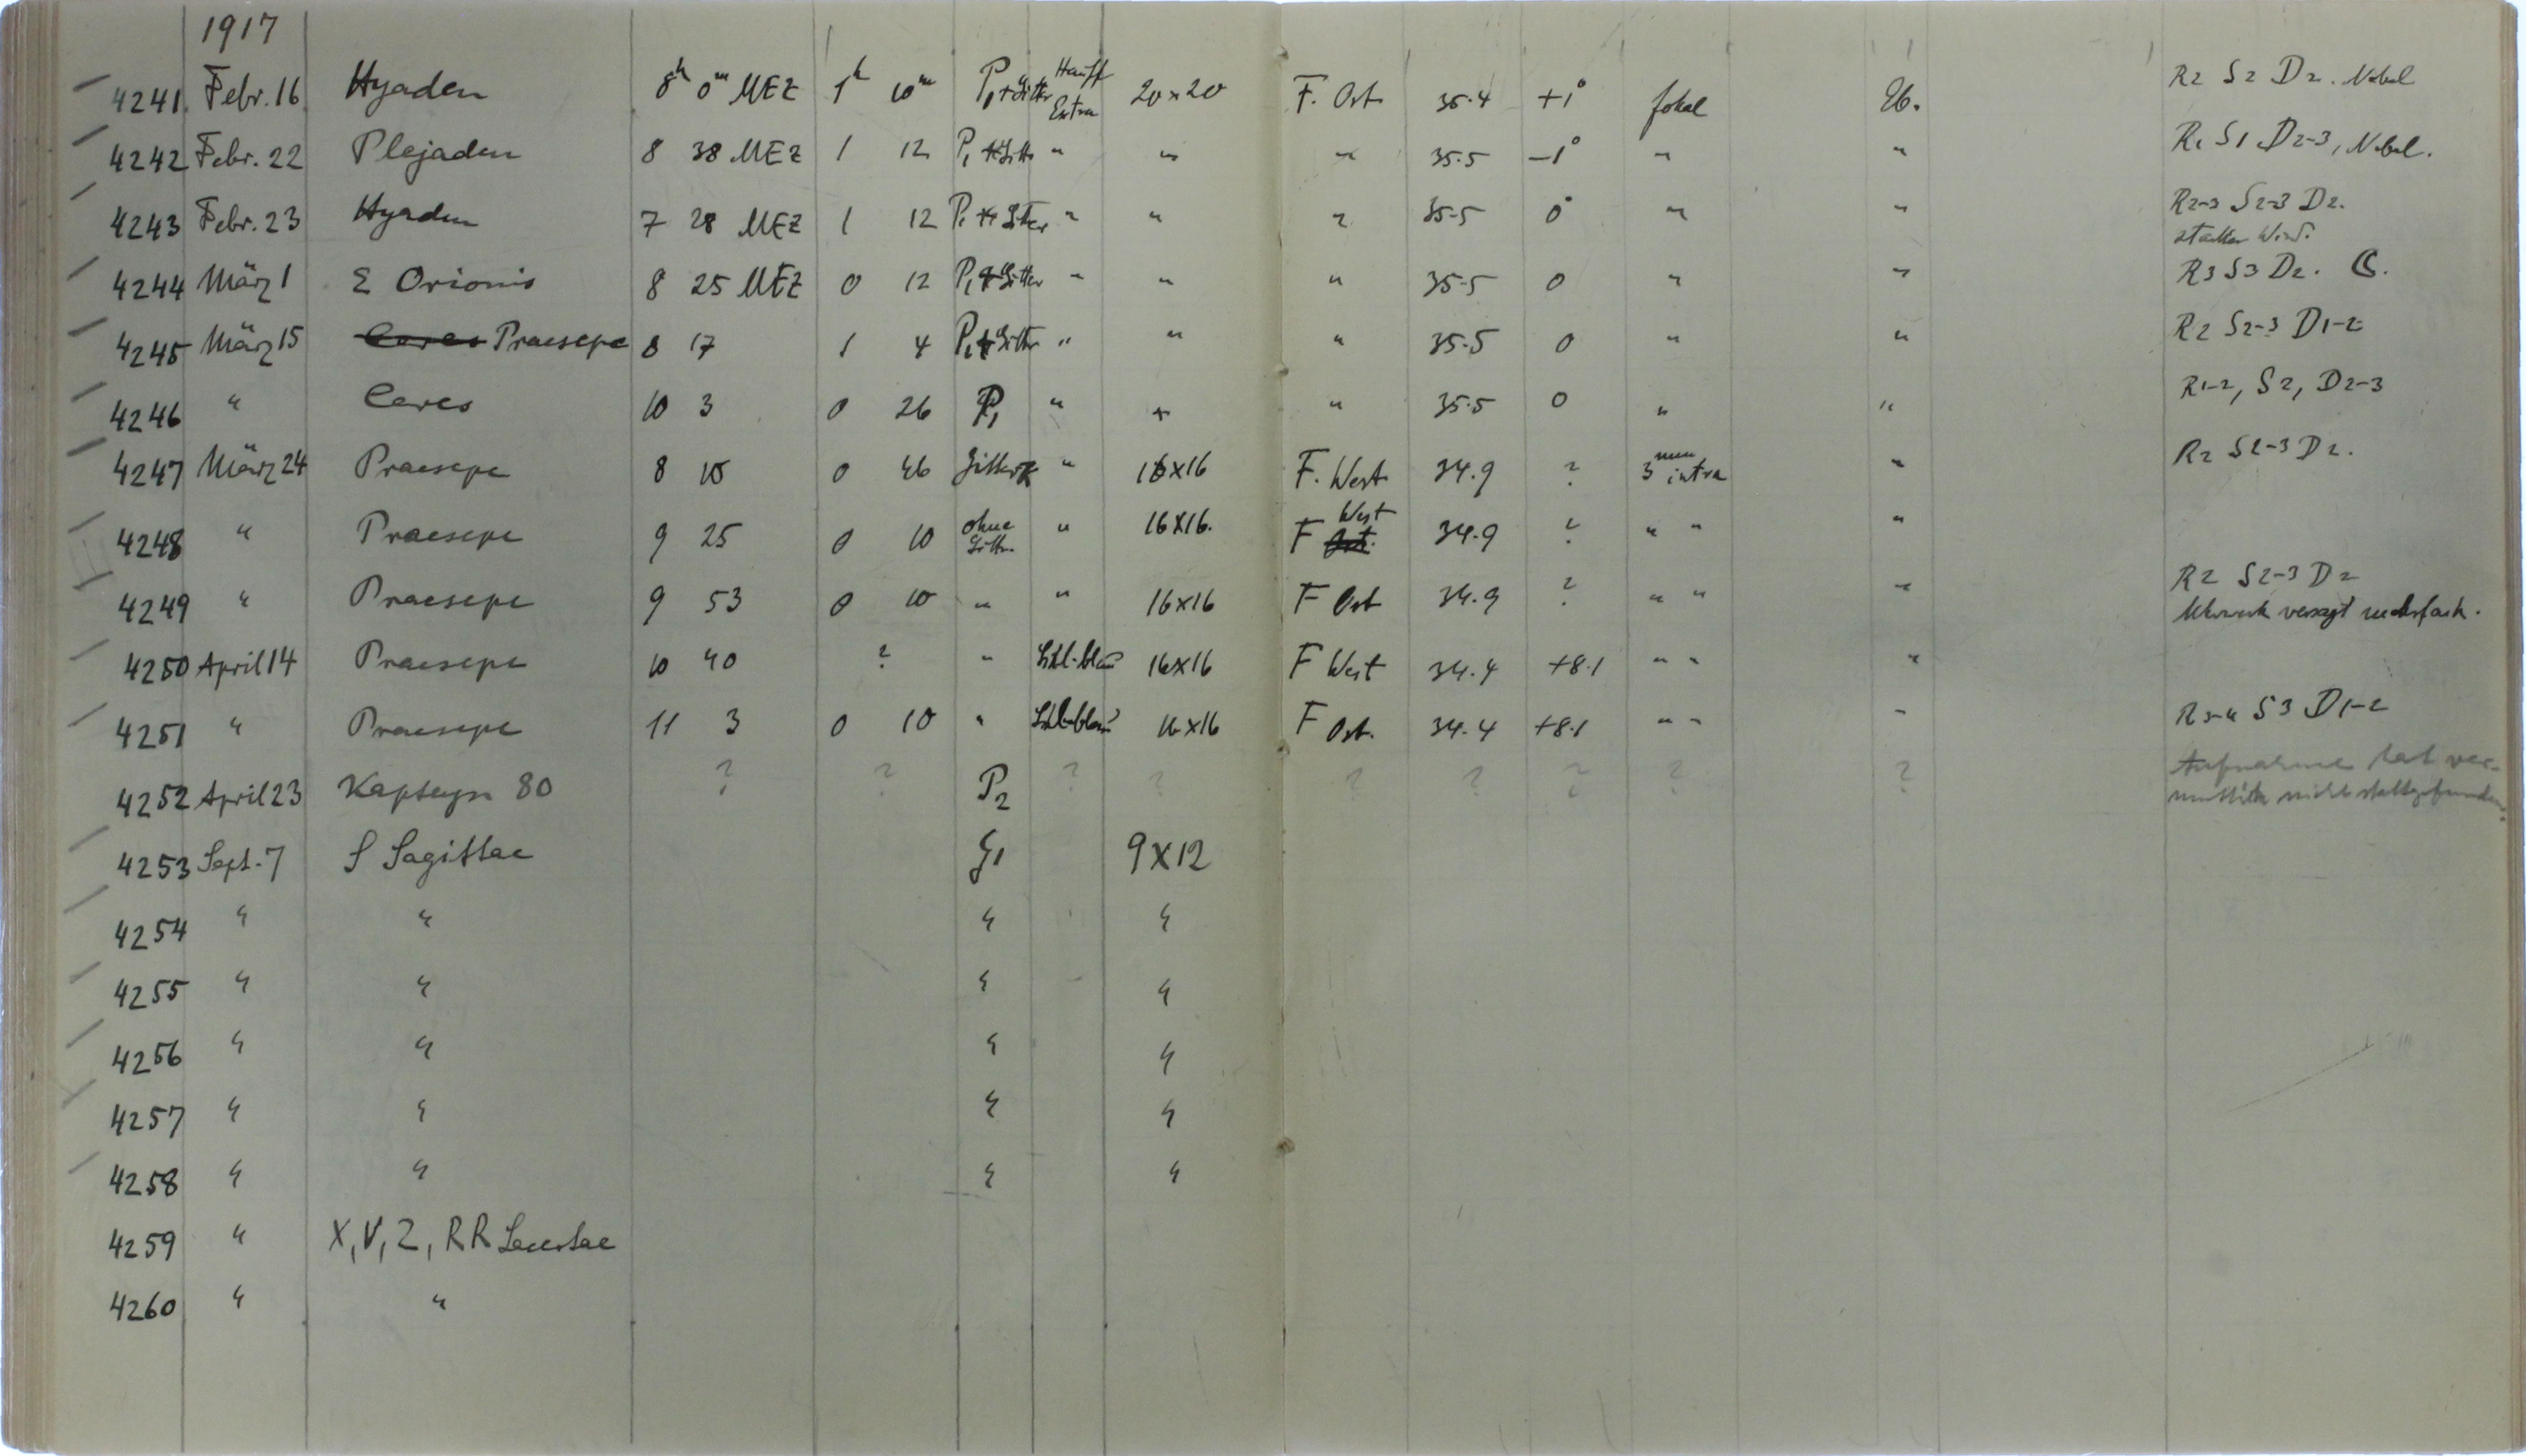 1917
4241 Febr. 16 Hyaden 8h 0m MEZ 1h 10m P1+Gitter Hauff Extra 20×20 F. Ost 35.4 +1° fokal Eb. R2 S2 D2. Nebel
4242 Febr. 22 Plejaden 8 38 MEZ 1 12 P1+Gitter " " " 35.5 −1° " " R1 S1 D2-3, Nebel.
4243 Febr. 23 Hyaden 7 28 MEZ 1 12 P1+Gitter " " " 35.5 0° " " R2-3 S2-3 D2.
starker Wind.
4244 März 1 Orionis 8 25 MEZ 0 12 P1+Gitter " " " 35.5 0 " " R3 S3 D2. ☾.
4245 März 15 Ceres Praesepe 8 17 1 4 P1+Gitter " " " 35.5 0 " " R2 S2-3 D1-2
4246 " Ceres 10 3 0 26 P1 " " " 35.5 0 " " R1-2, S2, D2-3
4247 März 24 Praesepe 8 10 0 46 Gitter " 16×16 F. West 34.9 ? 3 mm intra " R2 S2-3 D2.
4248 " Praesepe 9 25 0 10 ohne Gitter " 16×16. F Ost West 34.9 ? " " "
4249 " Praesepe 9 53 0 10 " " 16×16 F Ost 34.9 ? " " " R2 S2-3 D2
Uhrwerk versagt mehrfach.
4250 April 14 Praesepe 10 40 ? " 16×16 F West 34.4 +8.1 " " "
4251 " Praesepe 11 3 0 10 " 16×16 F Ost. 34.4 +8.1 " " " R3-4 S3 D1-2
4252 April 23 Kapteyn 80 ? ? P2 ? ? ? ? ? ? ? Aufnahme hat ver-
mutlich nicht stattgefunden.
4253 Sept. 7 S Sagittae G1 9×12
4254 " " " "
4255 " " " "
4256 " " " "
4257 " " " "
4258 " " " "
4259 " X, V, Z, RR Lacertae
4260 " "